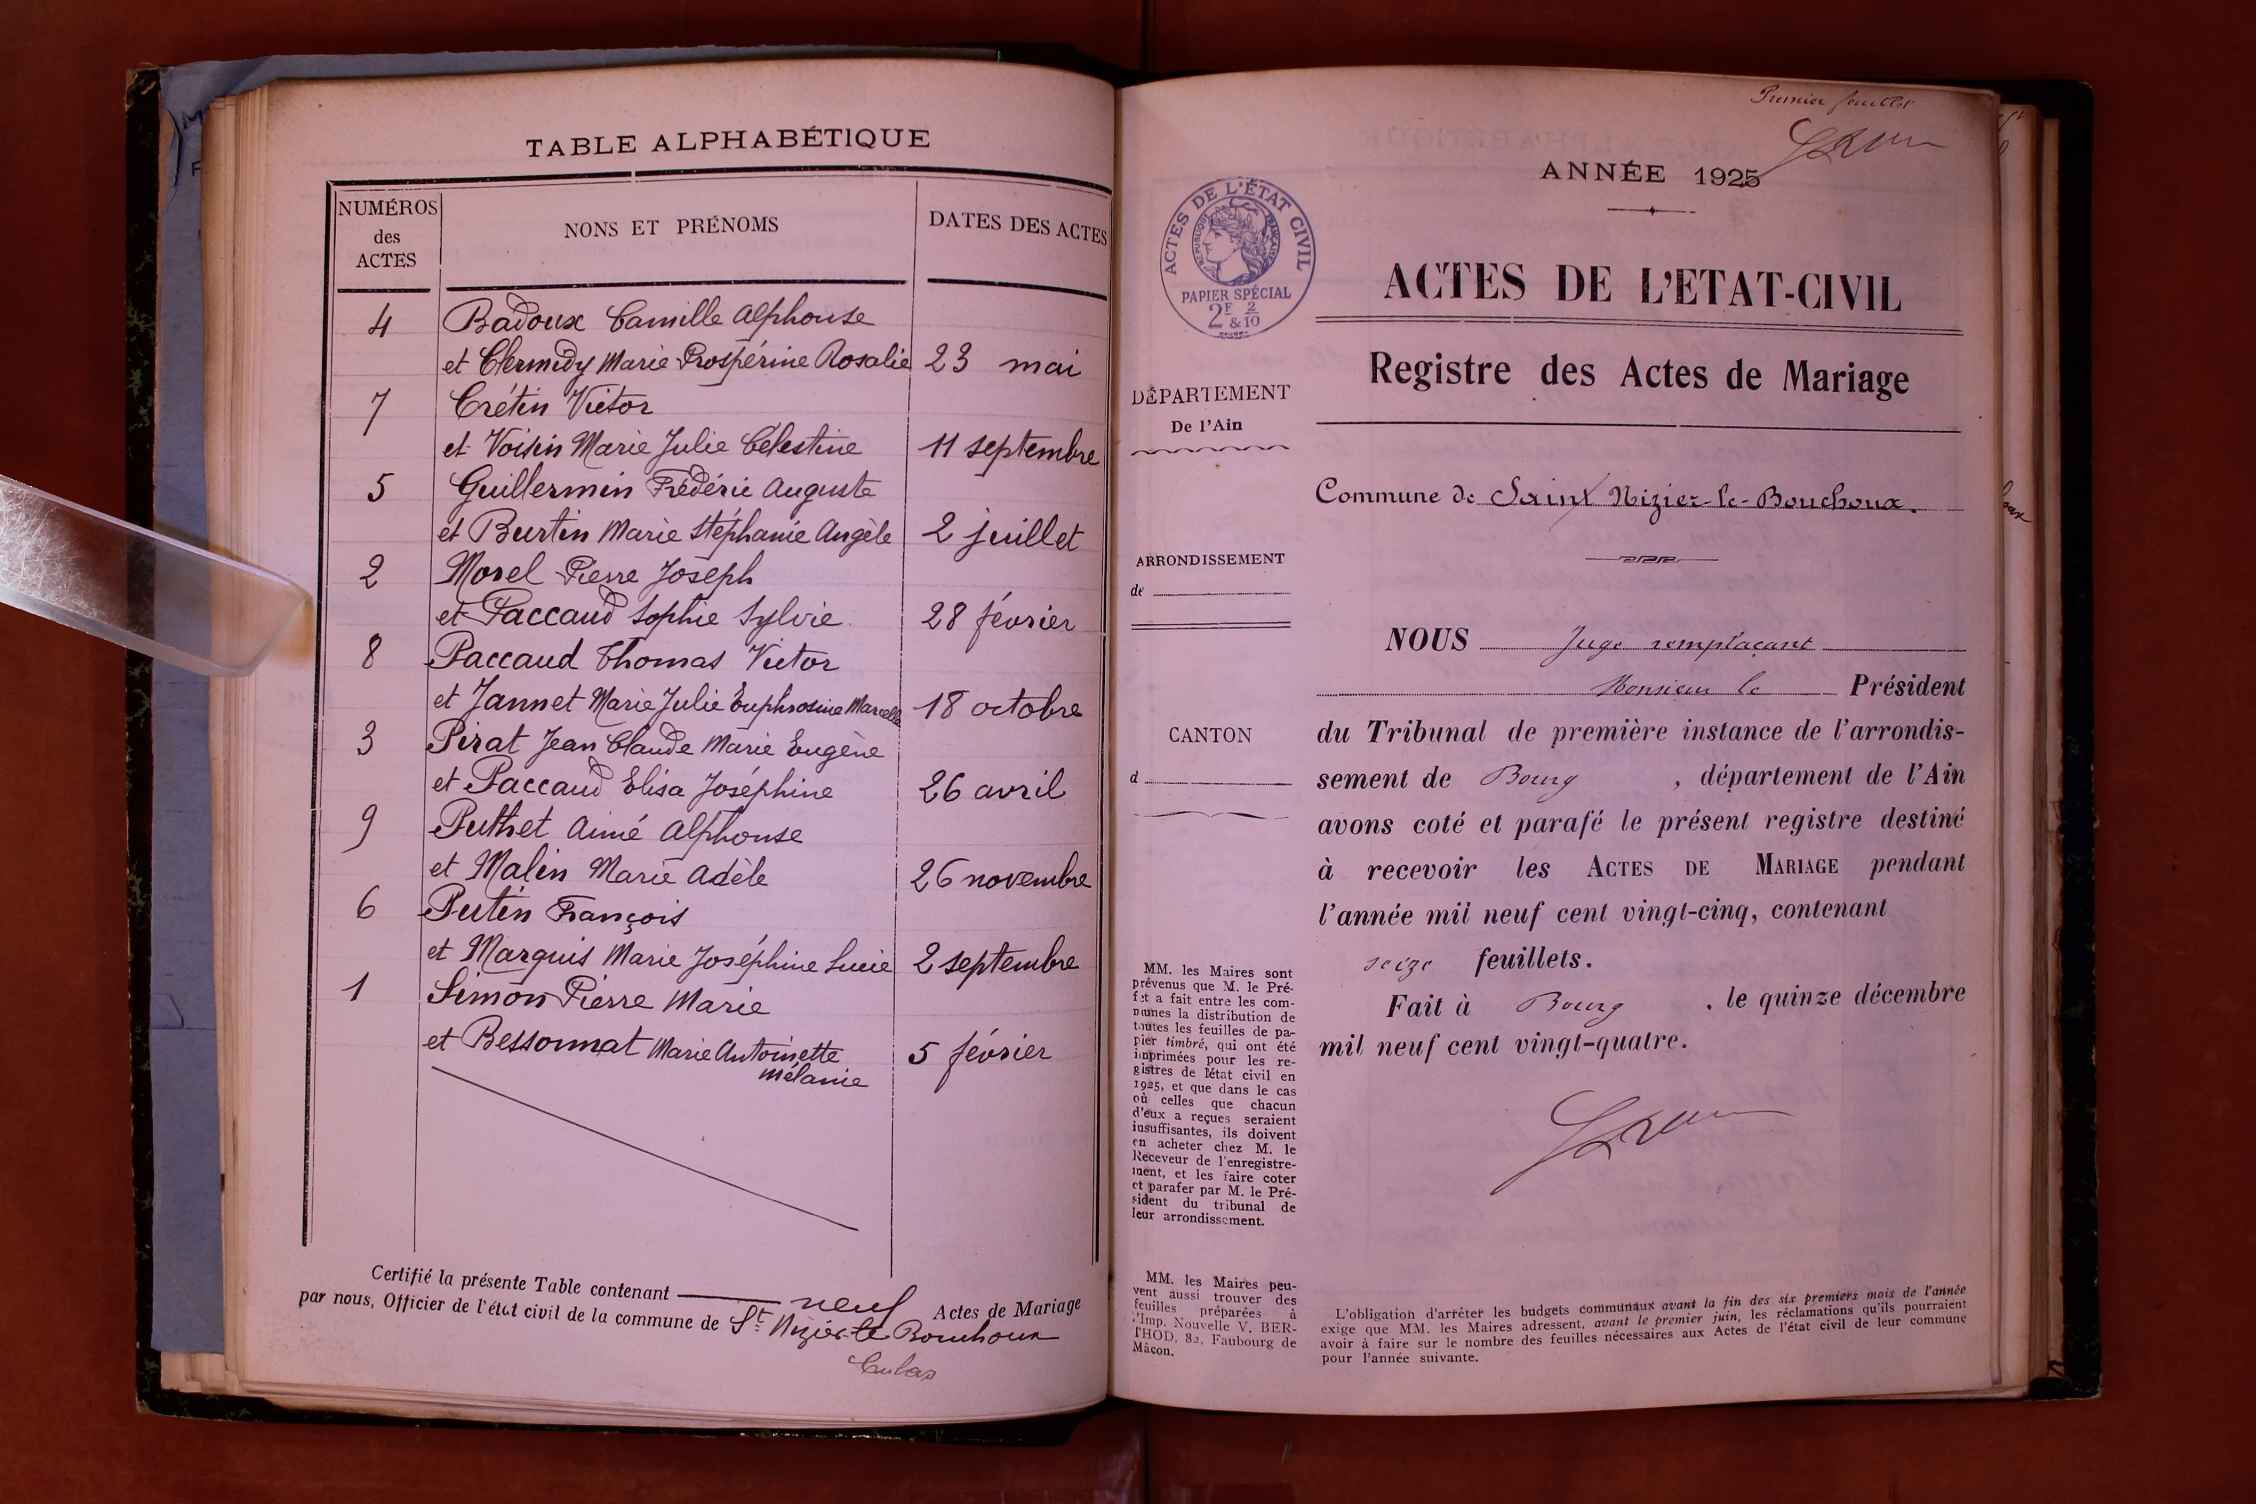 TABLE ALPHABÉTIQUE
NUMÉROS des ACTES
NONS ET PRÉNOMS
DATES DES ACTES
4 Badoux Camille Alphonse
et Clermidy Marie Prospérine Rosalie 23 mai
7 Crétin Victor
et Voisin Marie Julie Célestine 11 septembre
5 Guillermin Frédéric Auguste
et Burtin Marie Stéphanie Angèle 2 juillet
2 Morel Pierre Joseph
et Paccaud Sophie Sylvie 28 février
8 Paccaud Thomas Victor
et Jannet Marie Julie Euphrosine Marcelle 18 octobre
3 Pirat Jean Claude Marie Eugène
et Paccaud Elisa Joséphine 26 avril
9 Puthet Aimé Alphonse
et Malin Marie Adèle 26 novembre
6 Putin François
et Marquis Marie Joséphine Lucie 2 septembre
1 Simon Pierre Marie
et Bessonnat Marie Antoinette 5 février
Mélanie
Certifié la présente Table contenant neuf Actes de Mariage
par nous, Officier de l'état civil de la commune de St Nizier le Bouchoux
Premier feuillet
ANNÉE 1925
ACTES DE L'ÉTAT CIVIL
RÉPUBLIQUE FRANÇAISE
PAPIER SPÉCIAL
2F & 2/10
ACTES DE L'ETAT-CIVIL
Registre des Actes de Mariage
DÉPARTEMENT
De l'Ain
Commune de Saint Nizier-le-Bouchoux.
ARRONDISSEMENT
de
CANTON
d
NOUS Juge remplaçant
Monsieur le Président
du Tribunal de première instance de l'arrondis-
sement de Bourg, département de l'Ain
avons coté et parafé le présent registre destiné
à recevoir les ACTES DE MARIAGE pendant
l'année mil neuf cent vingt-cinq, contenant
seize feuillets.
Fait à Bourg, le quinze décembre
mil neuf cent vingt-quatre.
MM. les Maires sont
prévenus que M. le Pré-
fet a fait entre les com-
munes la distribution de
toutes les feuilles de pa-
pier timbré, qui ont été
imprimées pour les re-
gistres de l'état civil en
1925, et que dans le cas
où celles que chacun
d'eux a reçues seraient
insuffisantes, ils doivent
en acheter chez M. le
Receveur de l'enregistre-
ment, et les faire coter
et parafer par M. le Pré-
sident du tribunal de
leur arrondissement.
MM. les Maires peu-
vent aussi trouver des
feuilles préparées à
l'Imp. Nouvelle V. BER-
THOD, 82, Faubourg de
Mâcon.
L'obligation d'arrêter les budgets communaux avant la fin des six premiers mois de l'année
exige que MM. les Maires adressent, avant le premier juin, les réclamations qu'ils pourraient
avoir à faire sur le nombre des feuilles nécessaires aux Actes de l'état civil de leur commune
pour l'année suivante.